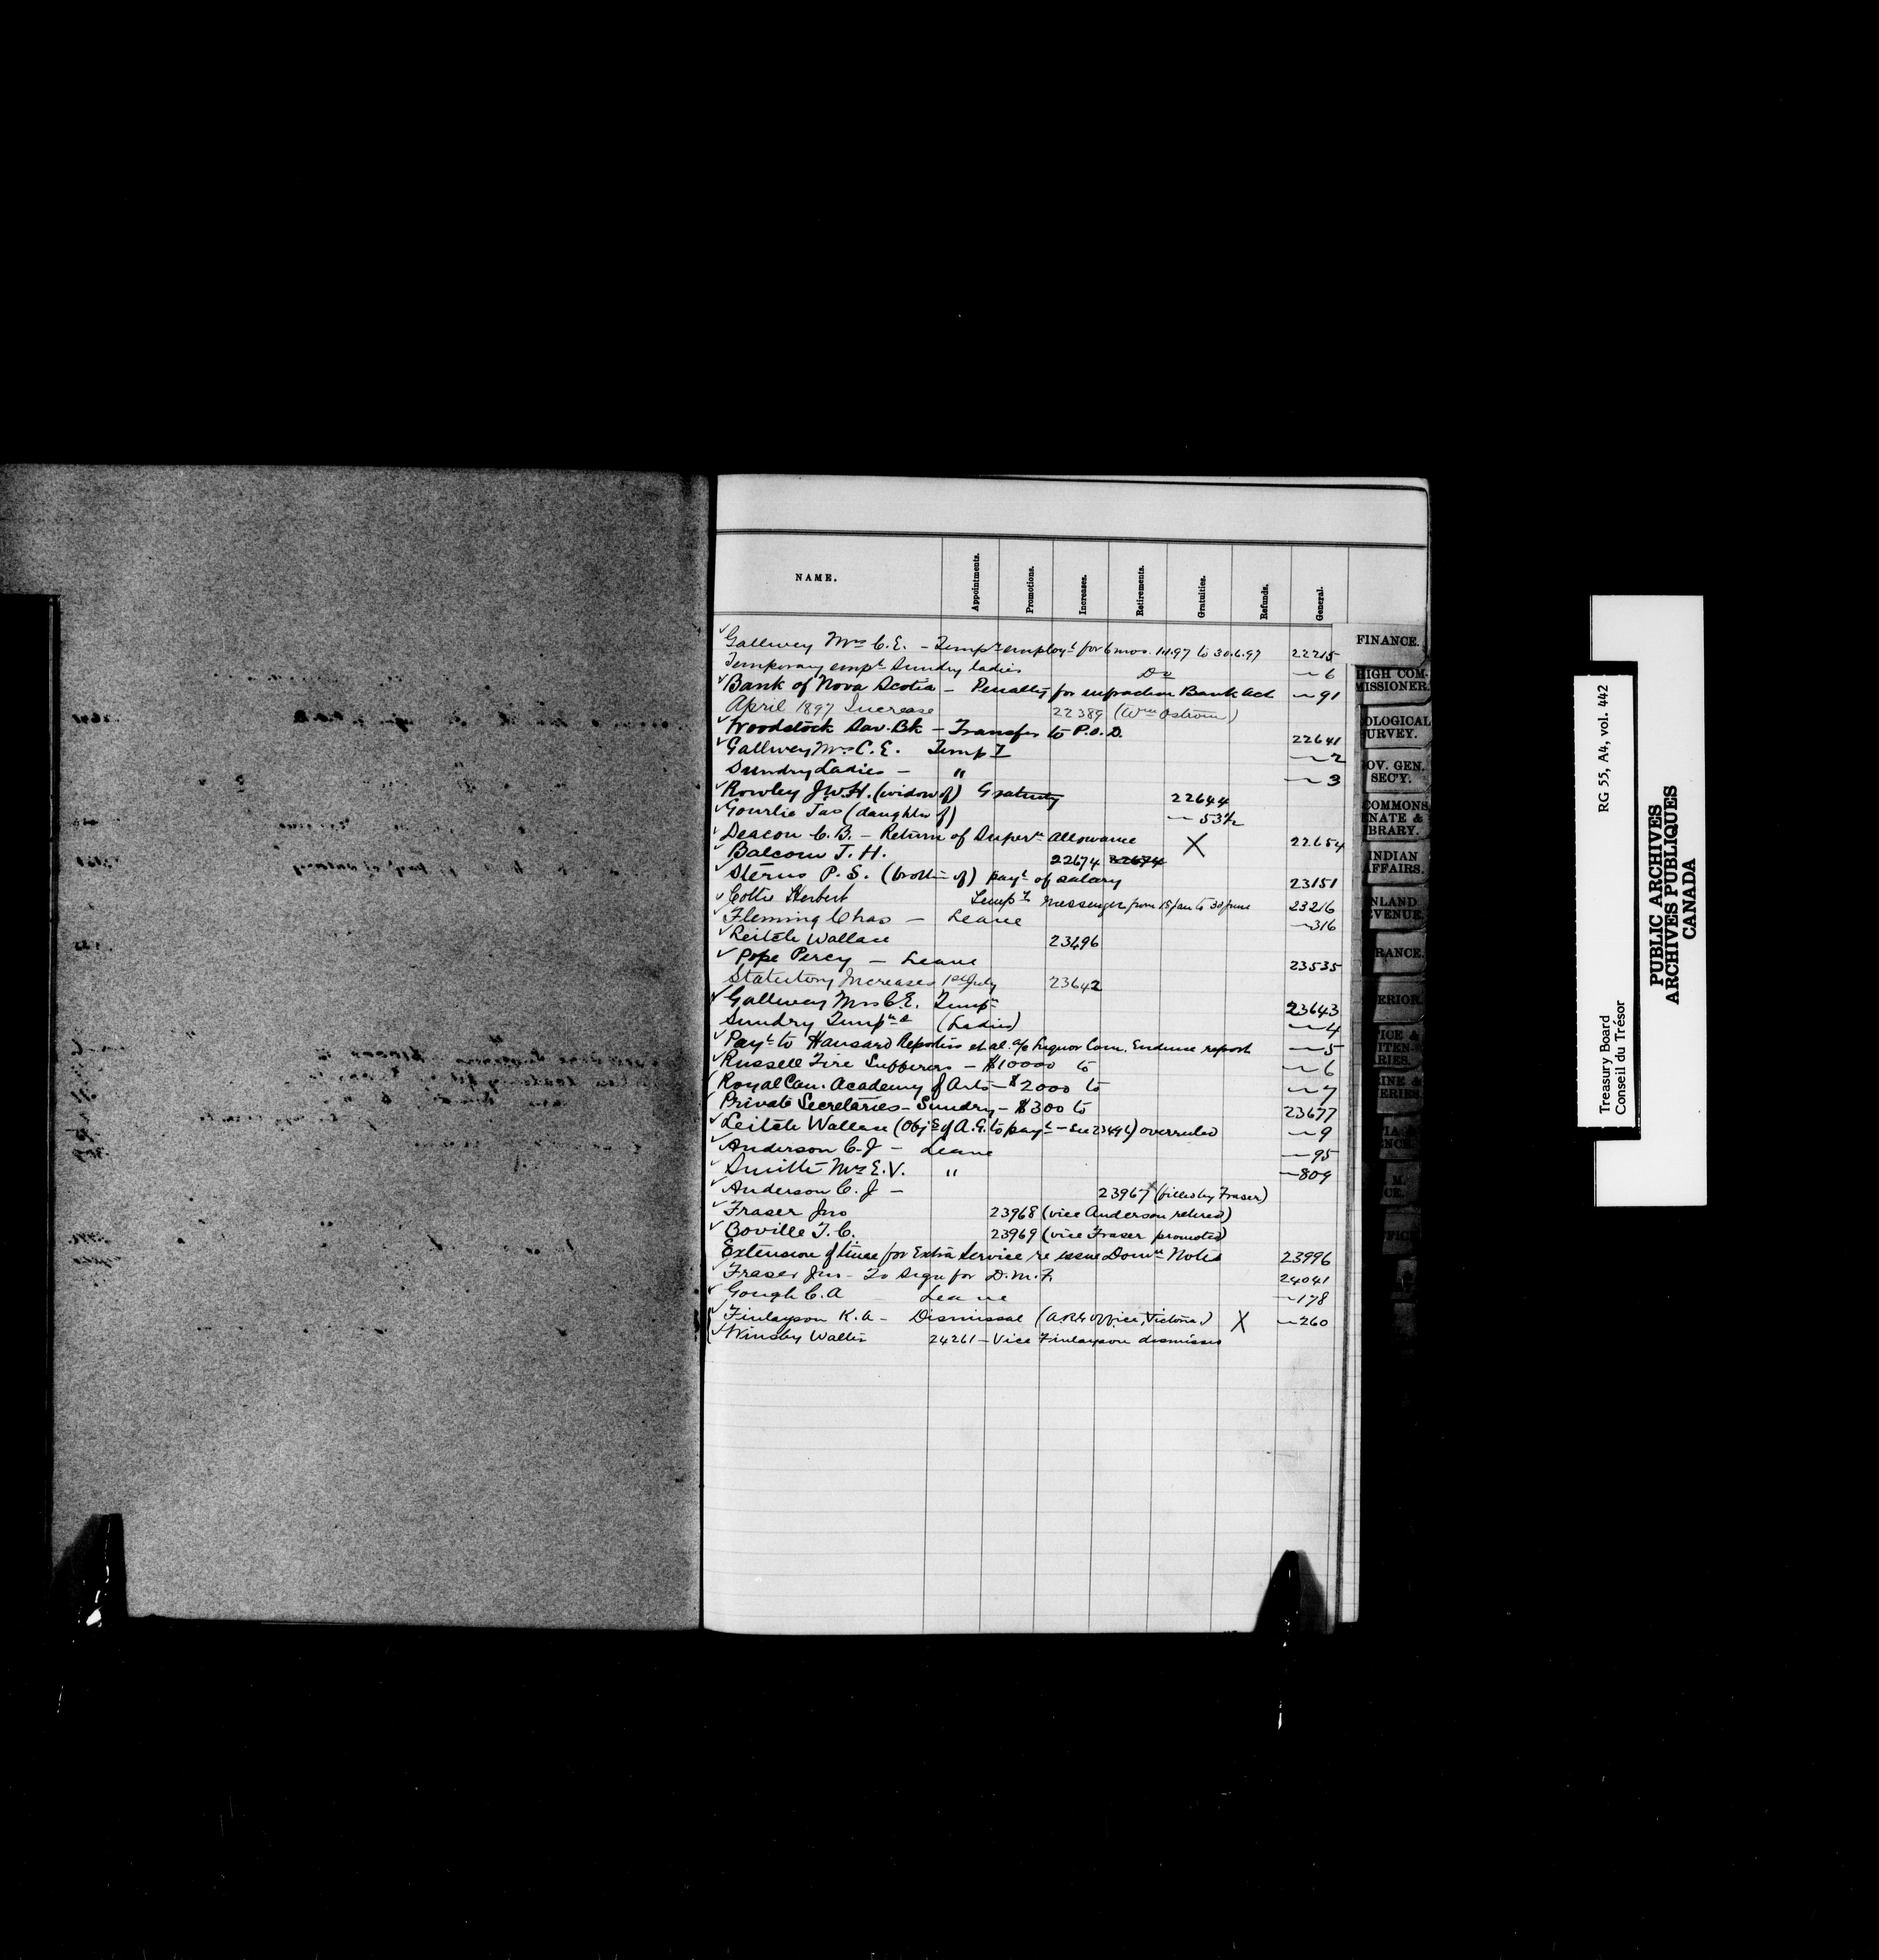 NAME. Appointments. Promotions. Increases. Retirements. Gratuities. Refunds. General.
✓ Gallwey Mrs C.E. – Tempy employt for 6 mos. 1.1.97 to 30.6.97 22215
Temporary empt Sundry ladies Do — 6
✓ Bank of Nova Scotia – Penalty for infraction Bank Act — 91
April 1897 Increase 22389 (Wm Ostrom)
✓ Woodstock Sav. Bk – Transfer to P.O.D. 22641
✓ Gallwey Mrs C.E. Tempy — 2
Sundry Ladies – " — 3
✓ Rowley J.W.H. (widow of) Gratuity 22644
✓ Gourlie Jas (daughter of) — 53½
✓ Deacon C.B. – Return of Supern allowance X 22654
✓ Balcom J.H. 22674 22674
✓ Sterns P.S. (brother of) payt of salary 23151
✓ Herbert Tempy Messenger from 15 Jan to 30 June 23216
✓ Fleming Chas – Leave — 316
✓ Leitch Wallace 23496
✓ Pope Percy – Leave 23535
Statutory Increases 1st July 23642
✓ Gallwey Mrs C.E. Tempy 23643
Sundry (Ladies) — 4
✓ Payt to Hansard Reporters et al. a/c Liquor Com. Evidence report — 5
✓ Russell Fire Sufferers – $10000 to — 6
Royal Can. Academy of Arts – $2000 to — 7
Private Secretaries – Sundry – $300 to 23677
✓ Leitch Wallace (Objs of A.G. to payt – See 23496) overruled — 9
✓ Anderson C.J – Leave — 95
✓ Smith Mrs E.V. " — 809
✓ Anderson C.J – 23967 x (filled by Fraser)
✓ Fraser Jno 23968 (vice Anderson retired)
✓ Boville T.C. 23969 (vice Fraser promoted)
Extension of time for Extra Service re issue Domn Notes 23996
✓ Fraser Jno – To sign for D.M.F. 24041
✓ Gough C.A Leave — 178
✓ Finlayson K.A – Dismissal (Office, Victoria) X — 260
✓ Winsby Walter 24261 – Vice Finlayson dismissed
FINANCE.
HIGH COM-
MISSIONER.
OLOGICAL
URVEY.
OV. GEN.
SEC'Y.
COMMONS
NATE &
BRARY.
INDIAN
AFFAIRS.
NLAND
EVENUE.
RANCE.
ERIOR.
ICE &
ITEN-
RIES.
INE &
ERIES.
Treasury Board RG 55, A4, vol. 442
Conseil du Trésor
PUBLIC ARCHIVES
ARCHIVES PUBLIQUES
CANADA